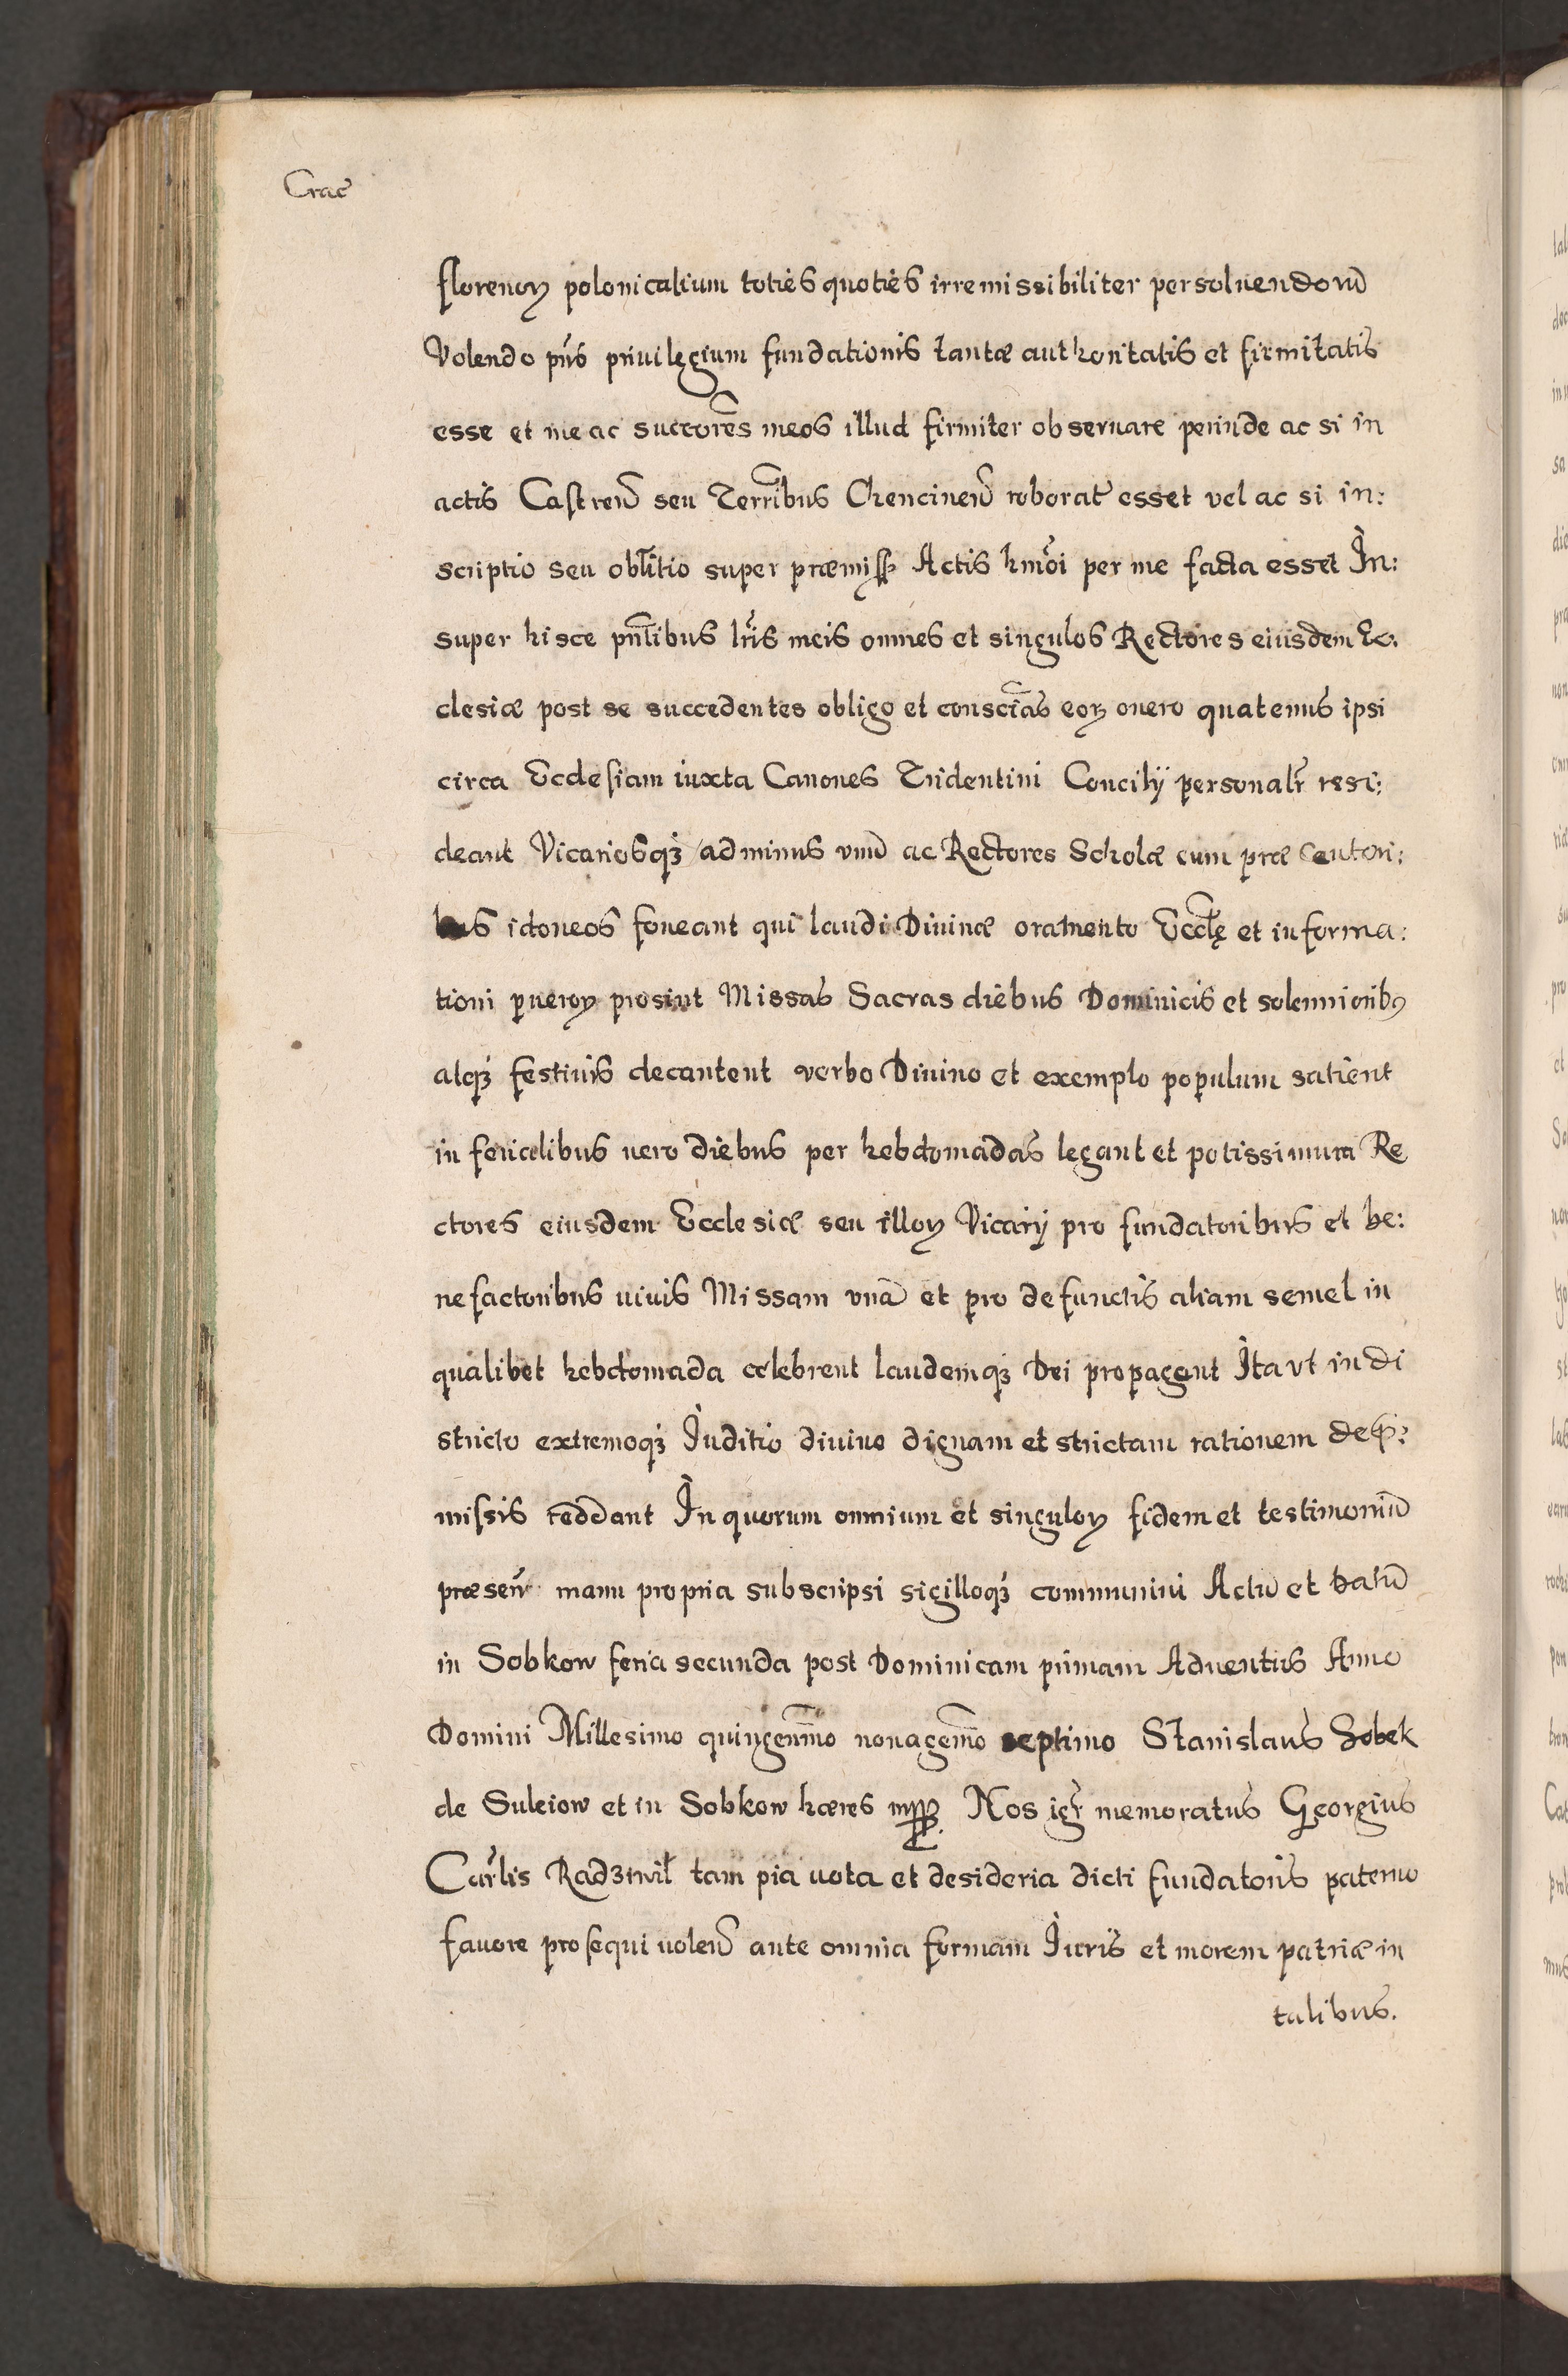 Crac̃
florenoꝝ polonicalium toties quoties irremissibiliter persoluendorũ
Volendo pñs priuilegium fundationis tantæ authoritatis et firmitatis
esse et me ac succores̃ meos illud firmiter obseruare perinde ac si in
actis Castreñ seu Terrñibus Chencineñ roborat̃ esset vel ac si in:
scriptio seu oblitĩo super præmiss̃ Actis hmõi per me facta esset In:
super hisce pñtibus lr̃is meis omnes et singulos Rectores eiusdem Ec:
clesiæ post se succedentes obligo et consciãs eoꝝ onero quatenus ipsi
circa Ecclesiam iuxta Canones Tridentini Concilij personalr̃ resi:
deant Vicariosqꝫ adminus vnũ ac Rectores Scholæ cum præ centori:
bus idoneos foueant qui laudi Diuinæ oramento Eccl̃ę et informa:
tioni pueroꝝ prosint Missas Sacras diebus Dominicis et solennioribꝰ
atqꝫ festiuis decantent verbo Diuino et exemplo populum satient
in ferialibus uero diebus per hebdomadas legant et potissimum Re
ctores eiusdem Ecclesiæ seu illoꝝ Vicarij pro fundatoribus et be:
nefactoribus uiuis Missam vnã et pro defunctis aliam semel in
qualibet hebdomada celebrent laudemqꝫ Dei propagent Ita vt in di
stricto extremoqꝫ Iuditio diuino dignam et strictam rationem de p̃:
missis reddant In quorum omnium et singuloꝝ fidem et testimoniũ
præseñ manu propria subscripsi sigilloqꝫ communini Actũ et datũ
in Sobkow feria secunda post Dominicam primam Aduentus Anno
Domini Millesimo quingenmõ nonagemõ septimo Stanislaus Sobek
de Suleiow et in Sobkow hæres mpp. Nos igr̃ memoratus Georgius
Carl̃is Radziwił tam pia uota et desideria dicti fundatoris paterno
fauore prosequi uoleñ ante omnia formam Iuris et morem patriæ in
talibus.